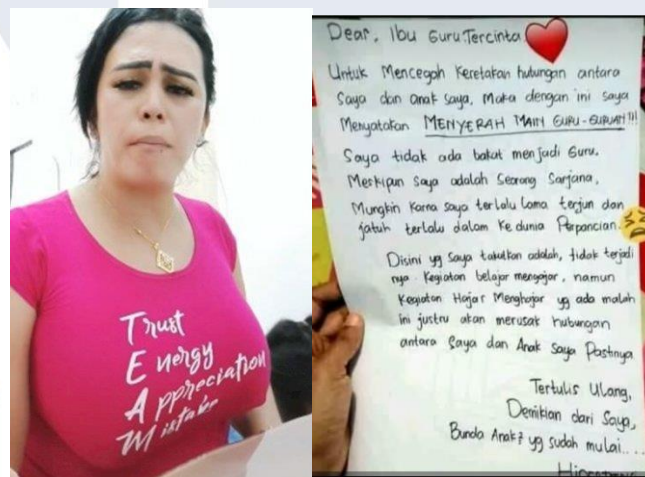 Trust
Energy
Appreciation
Mistake
Dear, Ibu Guru Tercinta
Untuk Mencegah Keretakan hubungan antara
Saya dan anak saya, Maka dengan ini saya
Menyatakan MENYERAH MAIN GURU-GURUAN!!!
Saya tidak ada bakat menjadi Guru.
Meskipun Saya adalah Seorang Sarjana,
Mungkin Karna saya terlalu lama terjun dan
jatuh terlalu dalam Ke dunia Perpancian.
Disini yg Saya takutkan adalah, tidak terjadi
nya Kegiatan belajar mengajar, namun
Kegiatan Hajar Menghajar yg ada malah
ini justru akan merusak hubungan
antara Saya dan Anak Saya Pastinya
Tertulis Ulang,
Demikian dari Saya,
Bunda Anak² yg sudah mulai....